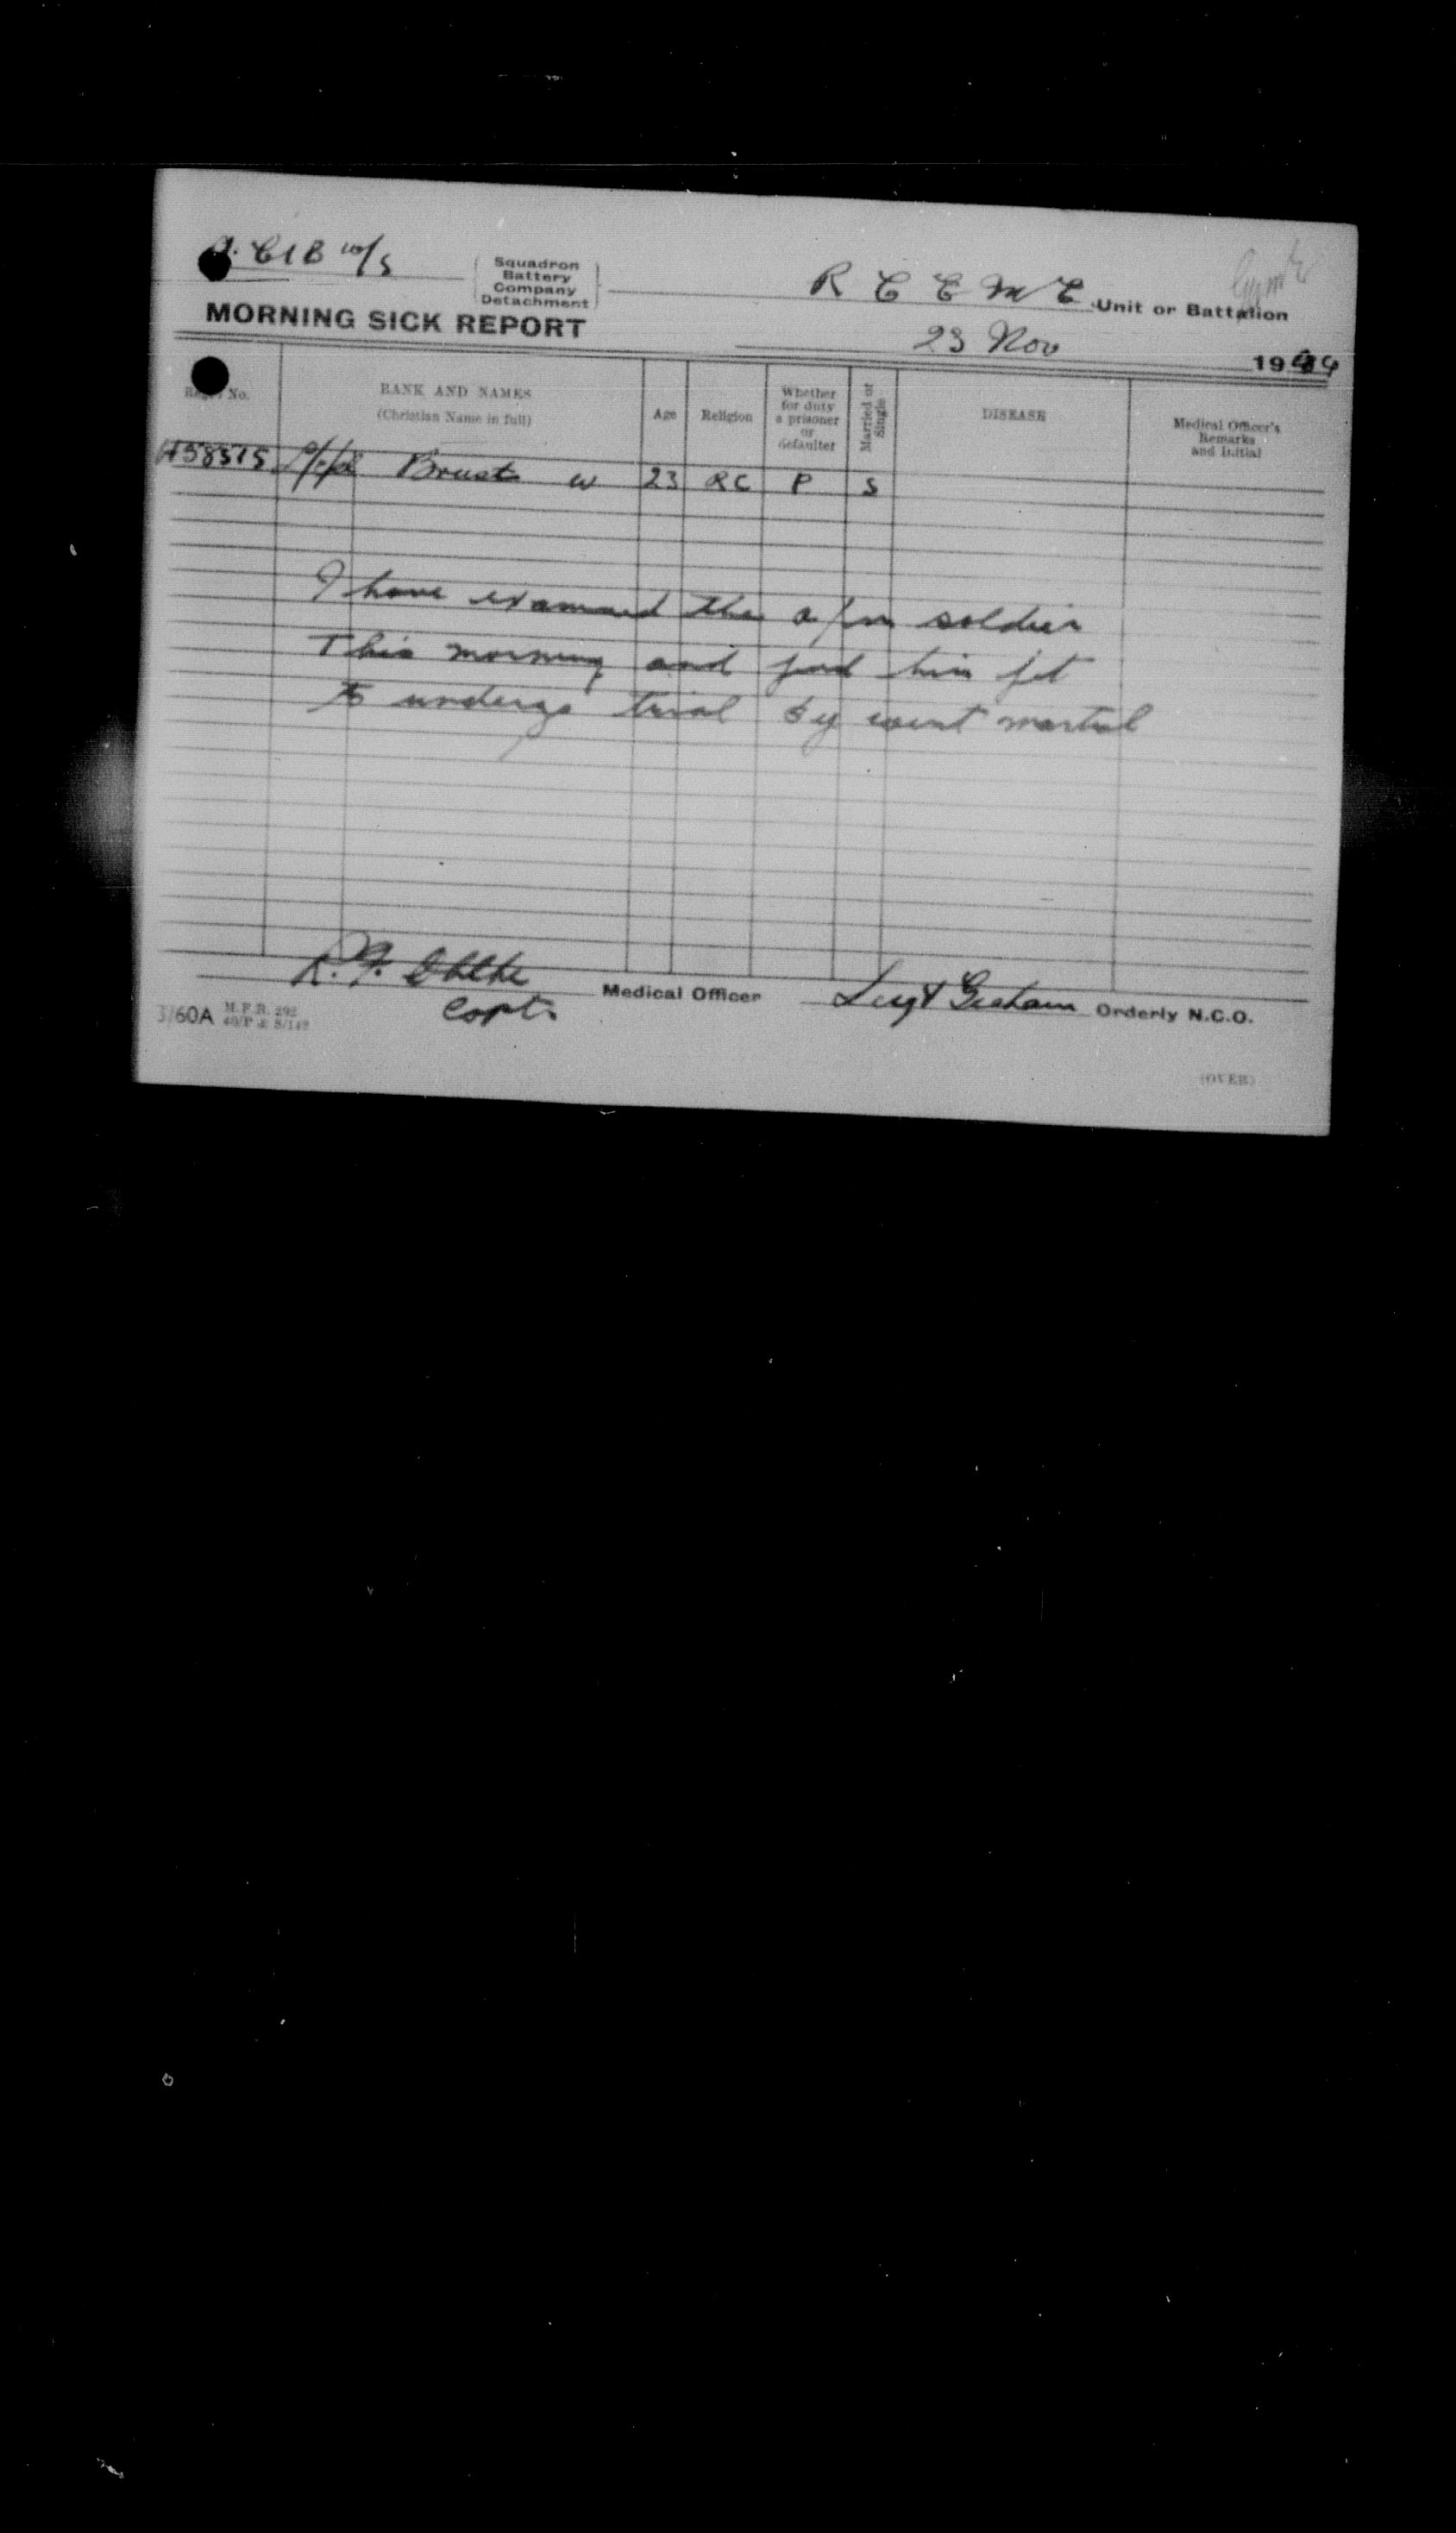 CIB w/s
Squadron
Battery
Company
Detachment
R C E M E Unit or Battalion
MORNING SICK REPORT
23 Nov 1944
No.
RANK AND NAMES
(Christian Name in full)
Age
Religion
Whether
for duty
a prisoner
or
defaulter
Married or
Single
DISEASE
Medical Officer's
Remarks
and Initial
H58515 Brust W 23 RC P S
I have examined the a/m soldier
This morning and find him fit
to undergo trial by court martial
R. F. Medical Officer
Capt.
Sergt Graham Orderly N.C.O.
3760A M.F.B. 292
(OVER)